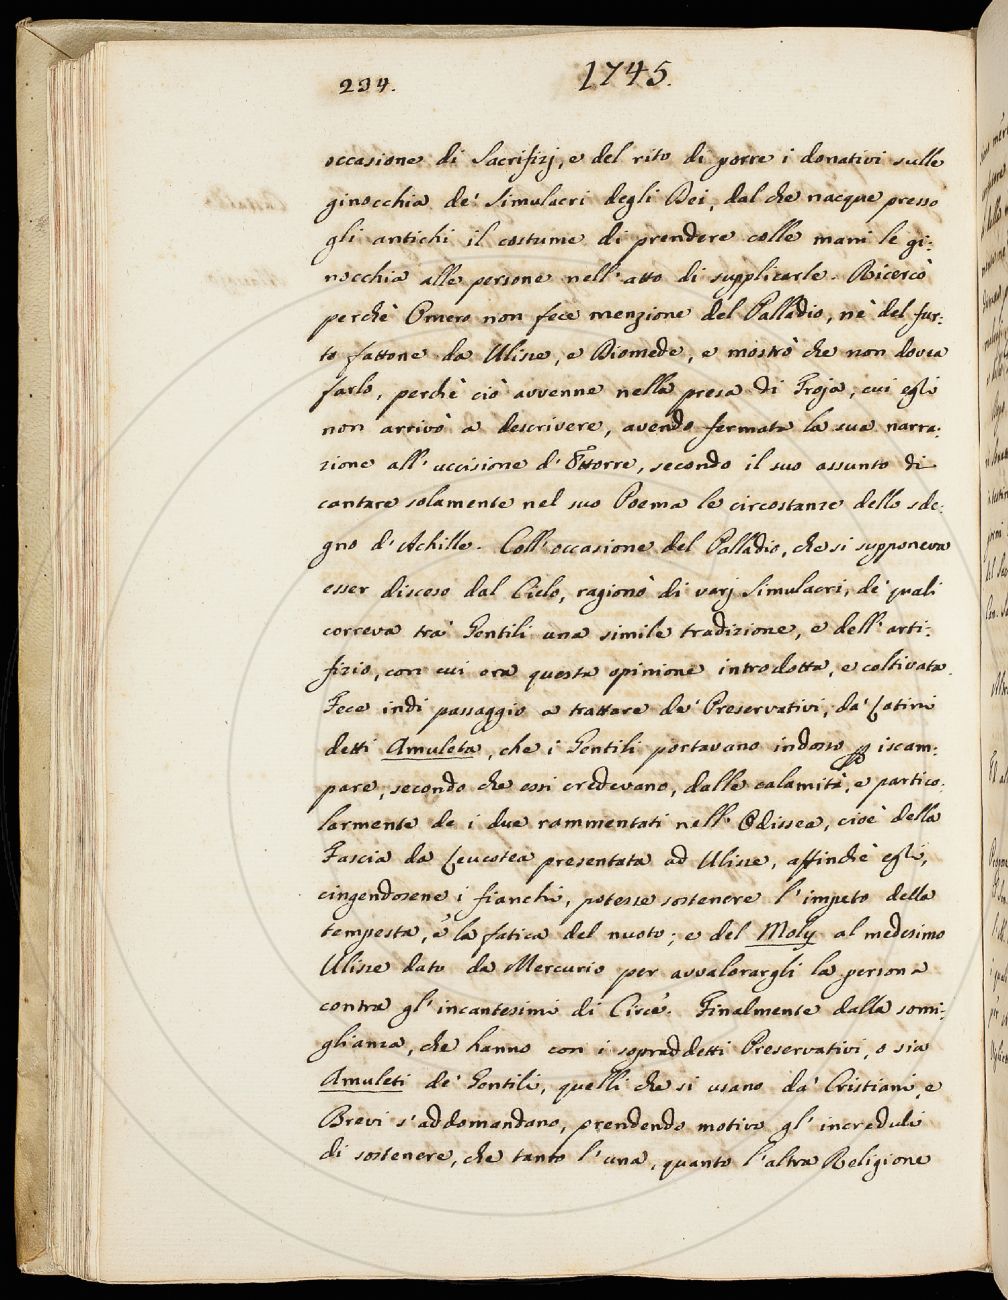 234.
1745.
occasione di Sacrifizj, e del rito di porre i donativi sulle
ginocchia de' Simulacri degli Dei, dal che nacque presso
gli antichi il costume di prendere colle mani le gi:
nocchia alle persone nell'atto di supplicarle. Ricercò
perchè Omero non fece menzione del Palladio, nè del fur:
to fattone da Ulisse, e Diomede, e mostrò che non dovea
farlo, perchè ciò avvenne nella presa di Troja, cui egli
non arrivò a descrivere, avendo fermata la sua narra:
zione all'uccisione d'Ettorre, secondo il suo assunto di
cantare solamente nel suo Poema le circostanze dello sde:
gno d'Achille. Coll'occasione del Palladio, che si supponeva
esser disceso dal Cielo, ragionò di varj Simulacri, de' quali
correva tra' Gentili una simile tradizione, e dell'arti:
fizio, con cui era questa opinione introdotta, e coltivata.
Fece indi passaggio a trattare de' Preservativi, da' Latini
detti Amuleta, che i Gentili portavano indosso p iscam:
pare, secondo che essi credevano, dalle calamità, e partico:
larmente de i due rammentati nell'Odissea, cioè della
Fascia da Leucotea presentata ad Ulisse, affinchè egli,
cingendosene i fianchi, potesse sostenere l'impeto della
tempesta, e la fatica del nuoto; e del Moly al medesimo
Ulisse dato da Mercurio per avvalorargli la persona
contra gl'incantesimi di Circe. Finalmente dalla somi:
glianza, che hanno con i sopraddetti Preservativi, o sia
Amuleti de' Gentili, quelli che si usano da' Cristiani, e
Brevi s'addomandano, prendendo motivo gl'increduli
di sostenere, che tanto l'una, quanto l'altra Religione